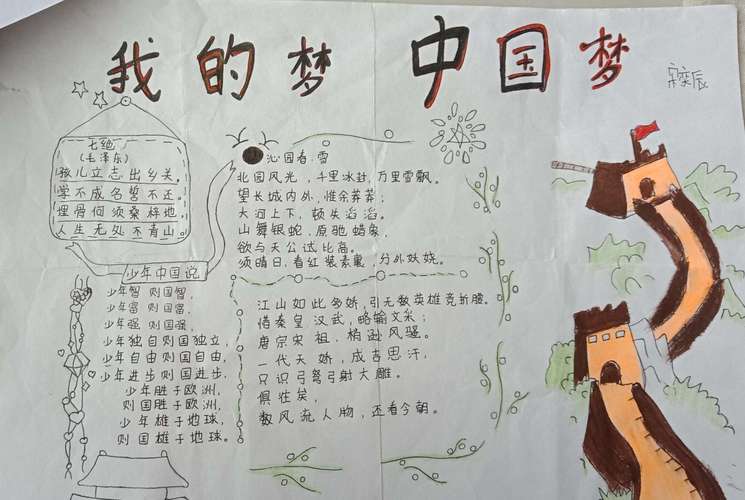 我的梦 中国梦
宋奕辰
七绝
(毛泽东)
孩儿立志出乡关,
学不成名誓不还。
埋骨何须桑梓地,
人生无处不青山。
少年中国说
少年智则国智,
少年富则国富,
少年强则国强,
少年独自则国独立,
少年自由则国自由,
少年进步则国进步,
少年胜于欧洲,
则国胜于欧洲,
少年雄于地球,
则国雄于地球。
沁园春·雪
北国风光,千里冰封,万里雪飘。
望长城内外,惟余莽莽;
大河上下,顿失滔滔。
山舞银蛇,原驰蜡象,
欲与天公试比高。
须晴日,看红装素裹,分外妖娆。
江山如此多娇,引无数英雄竞折腰。
惜秦皇汉武,略输文采;
唐宗宋祖,稍逊风骚。
一代天娇,成吉思汗,
只识弓弩弓射大雕。
俱往矣,
数风流人物,还看今朝。